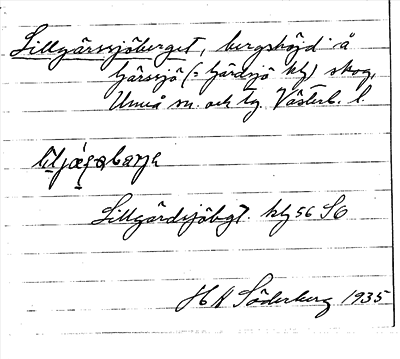 Lillgärssjöberget, bergshöjd å
Gärssjö (= Gärdsjö kbl) skog,
Umeå sn. och tg. Västerb. l.
Lillgärdsjöbgt. kbl 56 SO
H A Söderberg 1935